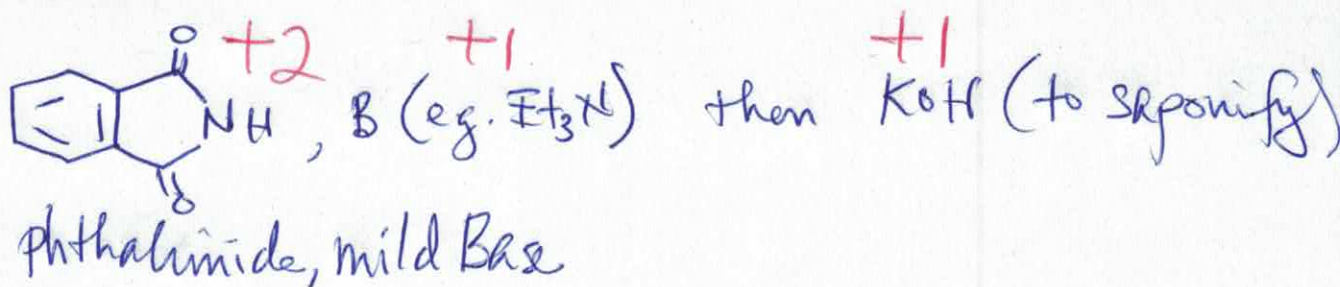 O +2 +1 +1
NH, B (eg. Et₃N) then KOH (to saponify)
O
phthalimide, mild Base